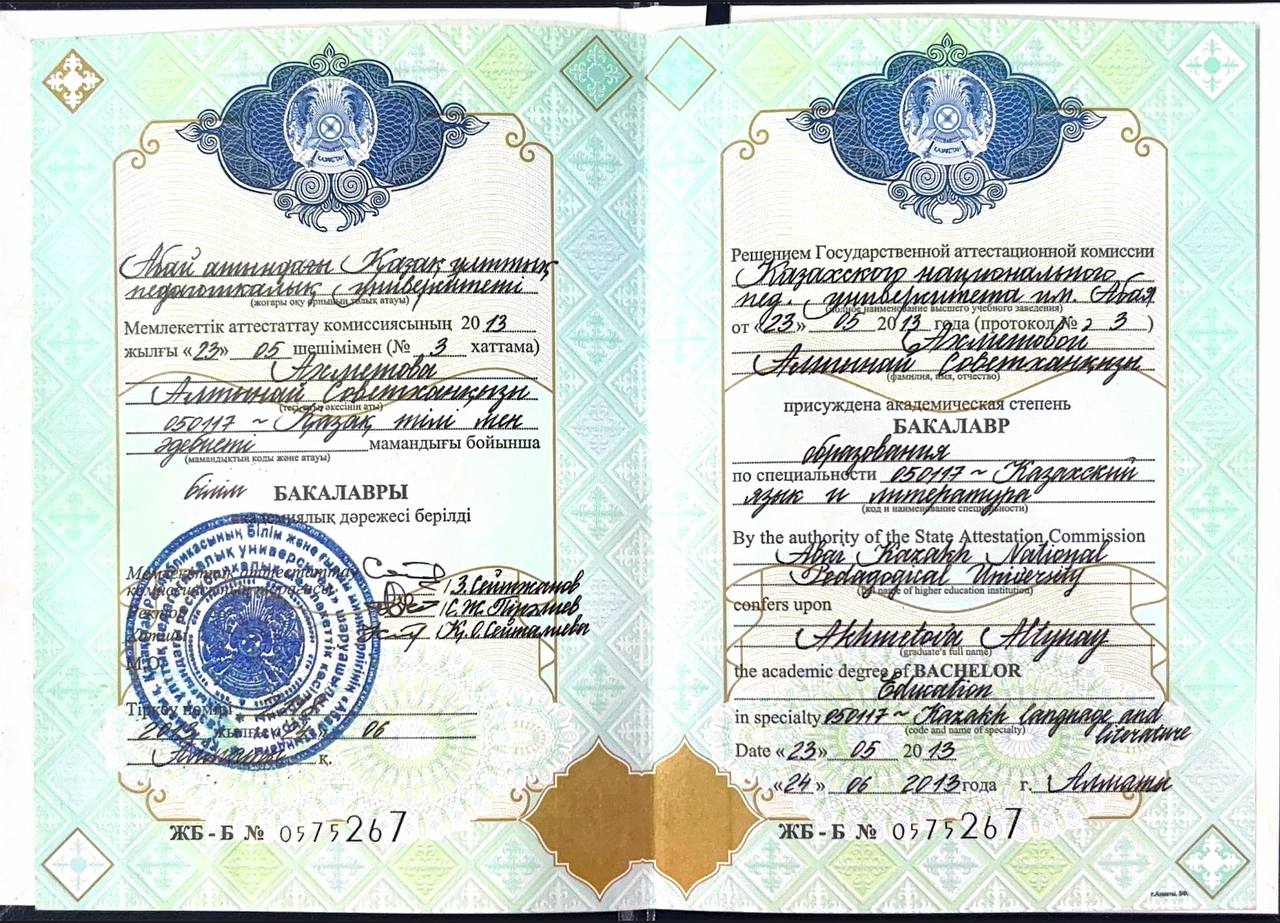 ҚАЗАҚСТАН
Абай атындағы Қазақ ұлттық
педагогикалық университеті
(жоғары оқу орнының толық атауы)
Мемлекеттік аттестаттау комиссиясының 2013
жылғы «23» 05 шешімімен (№ 3 хаттама)
Ахметова
Алтынай Советханқызы
(тегі, аты, әкесінің аты)
050117 ~ Қазақ тілі мен
әдебиеті мамандығы бойынша
(мамандықтың коды және атауы)
білім БАКАЛАВРЫ
академиялық дәрежесі берілді
Мемлекеттік аттестаттау
комиссиясының төрағасы
З. Сейтжанов
Ректор
Хатшы
М.О.
Тіркеу нөмірі
2013 жылғы «24» 06
Алматы қ.
ЖБ - Б № 0575267
ҚАЗАҚСТАН
Решением Государственной аттестационной комиссии
Казахского национального
пед. университета им. Абая
(полное наименование высшего учебного заведения)
от «23» 05 2013 года (протокол № 3 )
Ахметовой
Алтынай Советханқызы
(фамилия, имя, отчество)
присуждена академическая степень
БАКАЛАВР
образования
по специальности 050117 ~ Казахский
язык и литература
(код и наименование специальности)
By the authority of the State Attestation Commission
Abai Kazakh National
Pedagogical University
(full name of higher education institution)
confers upon
Akhmetova Altynay
(graduate's full name)
the academic degree of BACHELOR
Education
in specialty 050117 ~ Kazakh language and
literature
(code and name of specialty)
Date «23» 05 2013
«24» 06 2013 года г. Алматы
ЖБ - Б № 0575267
г.Алматы, БФ.